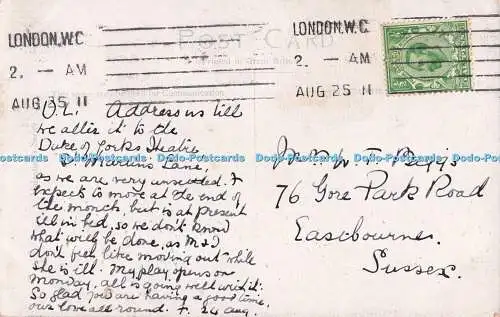 LONDON. W.C
2. — AM
AUG 25 11
LONDON. W.C
2. — AM
AUG 25 11
POST CARD
O.L. Address us till
we alter it to the
Duke of Yorks Theatre
St Martins Lane,
as we are very unsettled. F
expects to move at the end of
the month, but is at present
ill in bed, so we don't know
what will be done, as M & I
don't feel like moving out while
she is ill. My play opens on
Monday, all is going well with it.
So glad you are having a good time,
our love all round. F. 24 Aug.
76 Gore Park Road
Eastbourne.
Sussex.
Do-Postcards Do-Postcards Do-Postcards Do-Postcards Do-Postcards